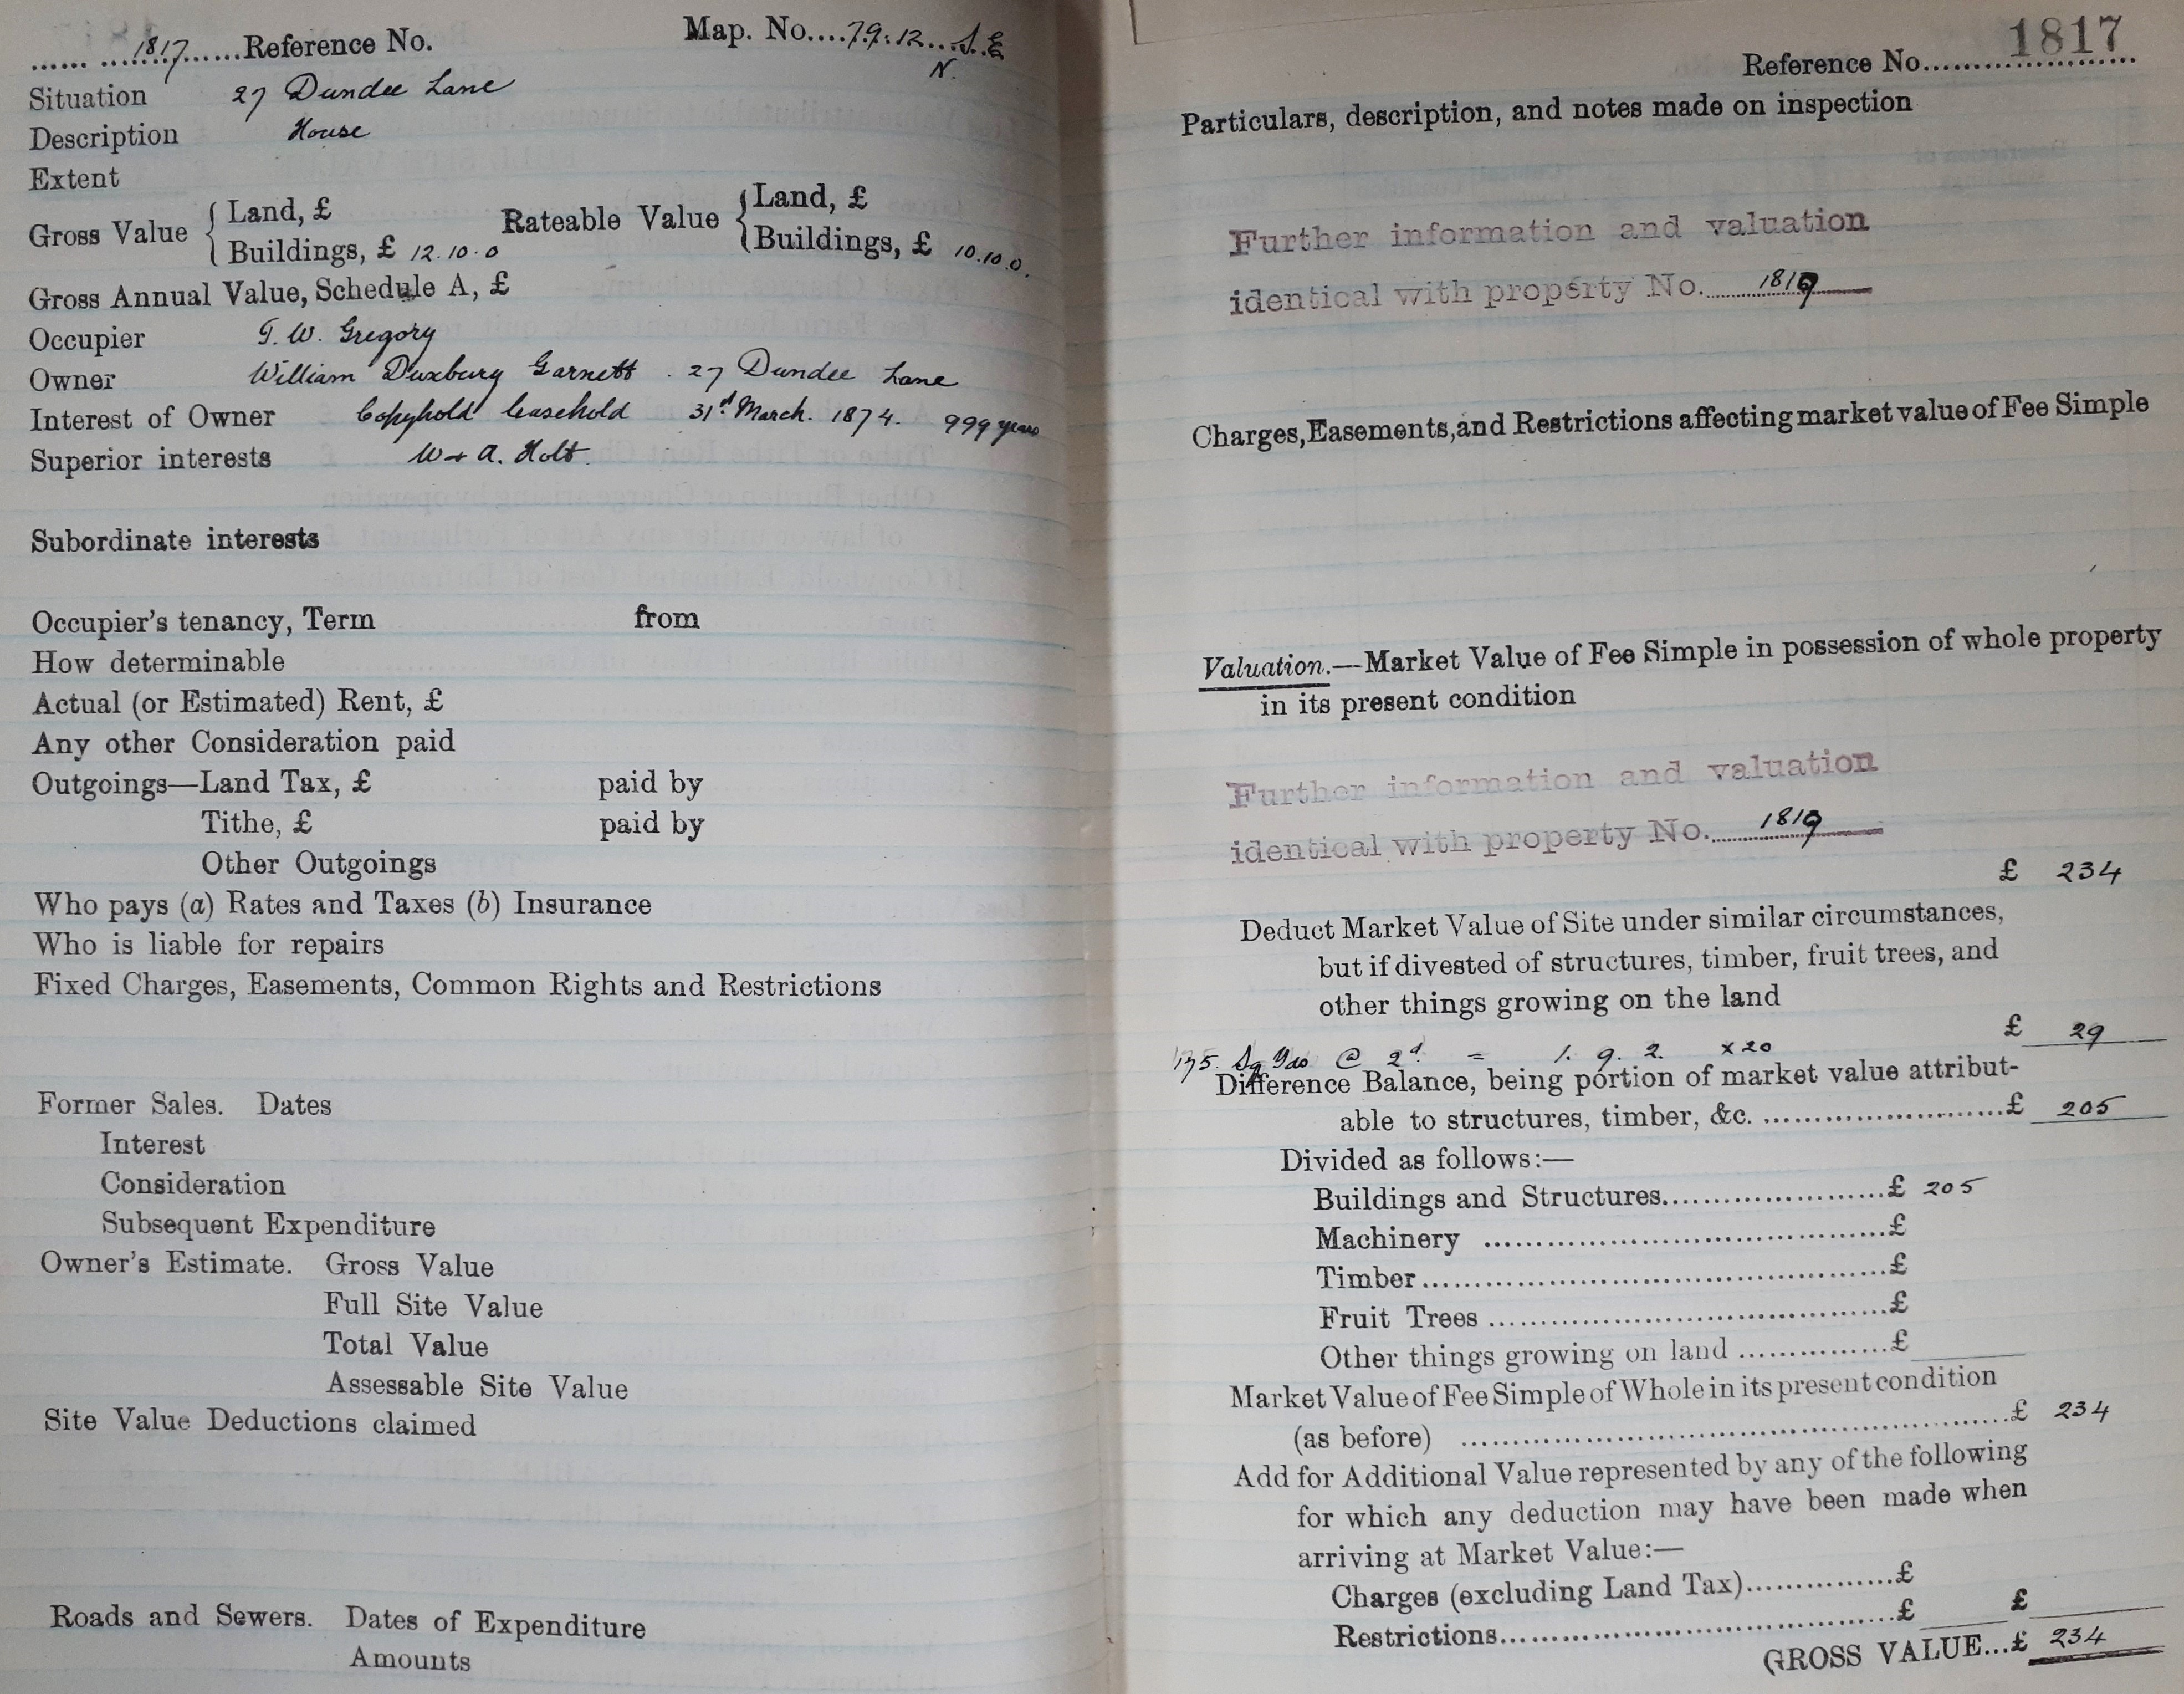 ...... 1817 ......Reference No. Map. No....79.12...S.E
N.
Situation 27 Dundee Lane
Description House
Extent
Gross Value { Land, £ Rateable Value { Land, £
Buildings, £ 12.10.0 Buildings, £ 10.10.0.
Gross Annual Value, Schedule A, £
Occupier T. W. Gregory
Owner William Duxbury Garnett . 27 Dundee Lane
Interest of Owner Copyhold leasehold 31st March. 1874. 999 years
Superior interests W + A. Holt.
Subordinate interests
Occupier's tenancy, Term from
How determinable
Actual (or Estimated) Rent, £
Any other Consideration paid
Outgoings—Land Tax, £ paid by
Tithe, £ paid by
Other Outgoings
Who pays (a) Rates and Taxes (b) Insurance
Who is liable for repairs
Fixed Charges, Easements, Common Rights and Restrictions
Former Sales. Dates
Interest
Consideration
Subsequent Expenditure
Owner's Estimate. Gross Value
Full Site Value
Total Value
Assessable Site Value
Site Value Deductions claimed
Roads and Sewers. Dates of Expenditure
Amounts
Reference No. 1817
Particulars, description, and notes made on inspection
Further information and valuation
identical with property No. 1819
Charges, Easements, and Restrictions affecting market value of Fee Simple
Valuation.—Market Value of Fee Simple in possession of whole property
in its present condition
Further information and valuation
identical with property No. 1819
£ 234
Deduct Market Value of Site under similar circumstances,
but if divested of structures, timber, fruit trees, and
other things growing on the land
£ 29
175 Sq Yds @ 2d. = 1. 9. 2. x20
Difference Balance, being portion of market value attribut-
able to structures, timber, &c. ........................£ 205
Divided as follows:—
Buildings and Structures........................£ 205
Machinery ........................£
Timber........................£
Fruit Trees ........................£
Other things growing on land ...............£
Market Value of Fee Simple of Whole in its present condition
(as before) ........................£ 234
Add for Additional Value represented by any of the following
for which any deduction may have been made when
arriving at Market Value:—
Charges (excluding Land Tax)...............£
Restrictions........................£ £
GROSS VALUE...£ 234